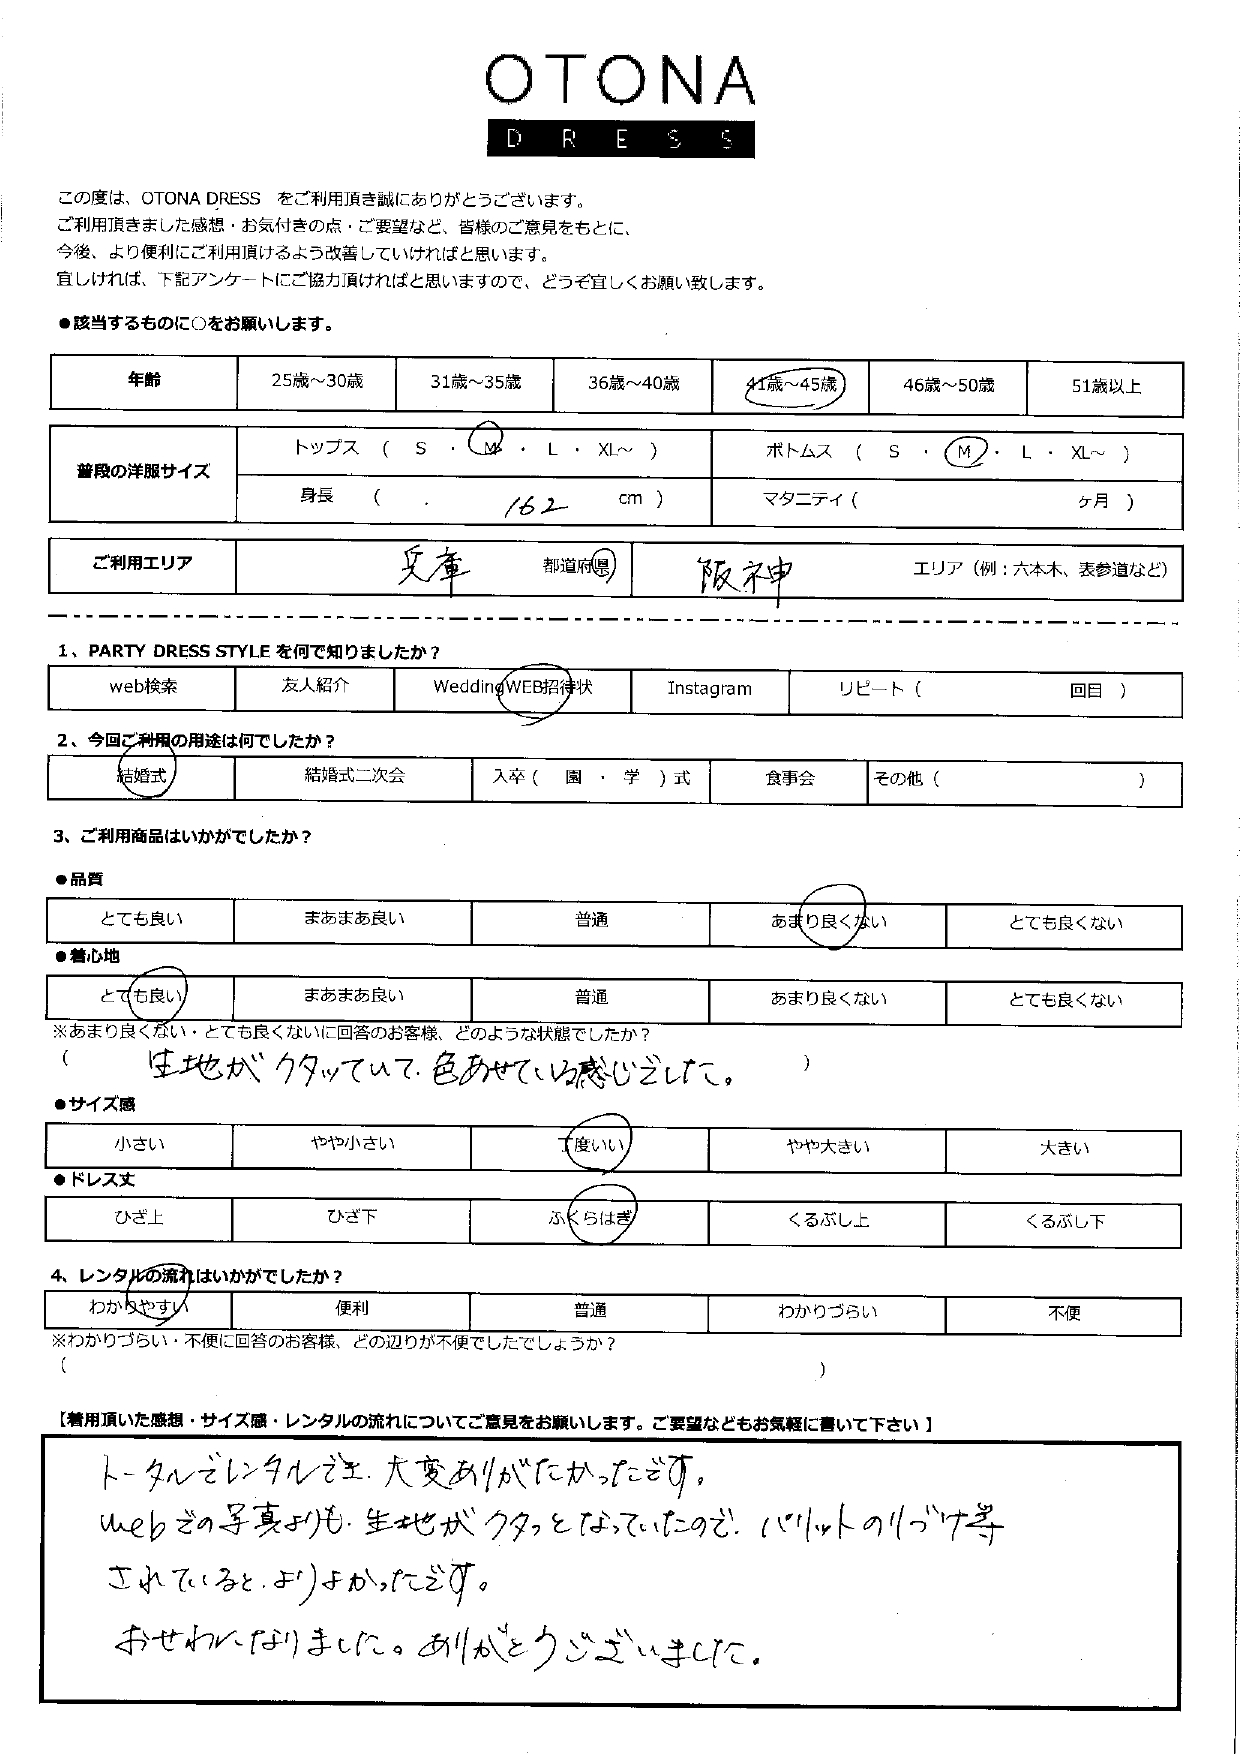 OTONA
DRESS
この度は、OTONA DRESS をご利用頂き誠にありがとうございます。
ご利用頂きました感想・お気付きの点・ご要望など、皆様のご意見をもとに、
今後、より便利にご利用頂けるよう改善していければと思います。
宜しければ、下記アンケートにご協力頂ければと思いますので、どうぞ宜しくお願い致します。
●該当するものに○をお願いします。
年齢 25歳～30歳 31歳～35歳 36歳～40歳 41歳～45歳 46歳～50歳 51歳以上
普段の洋服サイズ トップス ( S ・ M ・ L ・ XL～ ) ボトムス ( S ・ M ・ L ・ XL～ )
身長 ( 162 cm ) マタニティ ( ヶ月 )
ご利用エリア 兵庫 都道府県 阪神 エリア（例：六本木、表参道など）
1、PARTY DRESS STYLE を何で知りましたか？
web検索 友人紹介 WeddingWEB招待状 Instagram リピート ( 回目 )
2、今回ご利用の用途は何でしたか？
結婚式 結婚式二次会 入卒 ( 園 ・ 学 ) 式 食事会 その他 ( )
3、ご利用商品はいかがでしたか？
●品質
とても良い まあまあ良い 普通 あまり良くない とても良くない
●着心地
とても良い まあまあ良い 普通 あまり良くない とても良くない
※あまり良くない・とても良くないに回答のお客様、どのような状態でしたか？
( 生地がクタッていて、色あせている感じでした。 )
●サイズ感
小さい やや小さい 丁度いい やや大きい 大きい
●ドレス丈
ひざ上 ひざ下 ふくらはぎ くるぶし上 くるぶし下
4、レンタルの流れはいかがでしたか？
わかりやすい 便利 普通 わかりづらい 不便
※わかりづらい・不便に回答のお客様、どの辺りが不便でしたでしょうか？
( )
【着用頂いた感想・サイズ感・レンタルの流れについてご意見をお願いします。ご要望などもお気軽に書いて下さい】
トータルでレンタルでき、大変ありがたかったです。
webでの写真よりも、生地がクタっとなっていたので、パリットのりづけ等
されていると、よりよかったです。
おせわになりました。ありがとうございました。